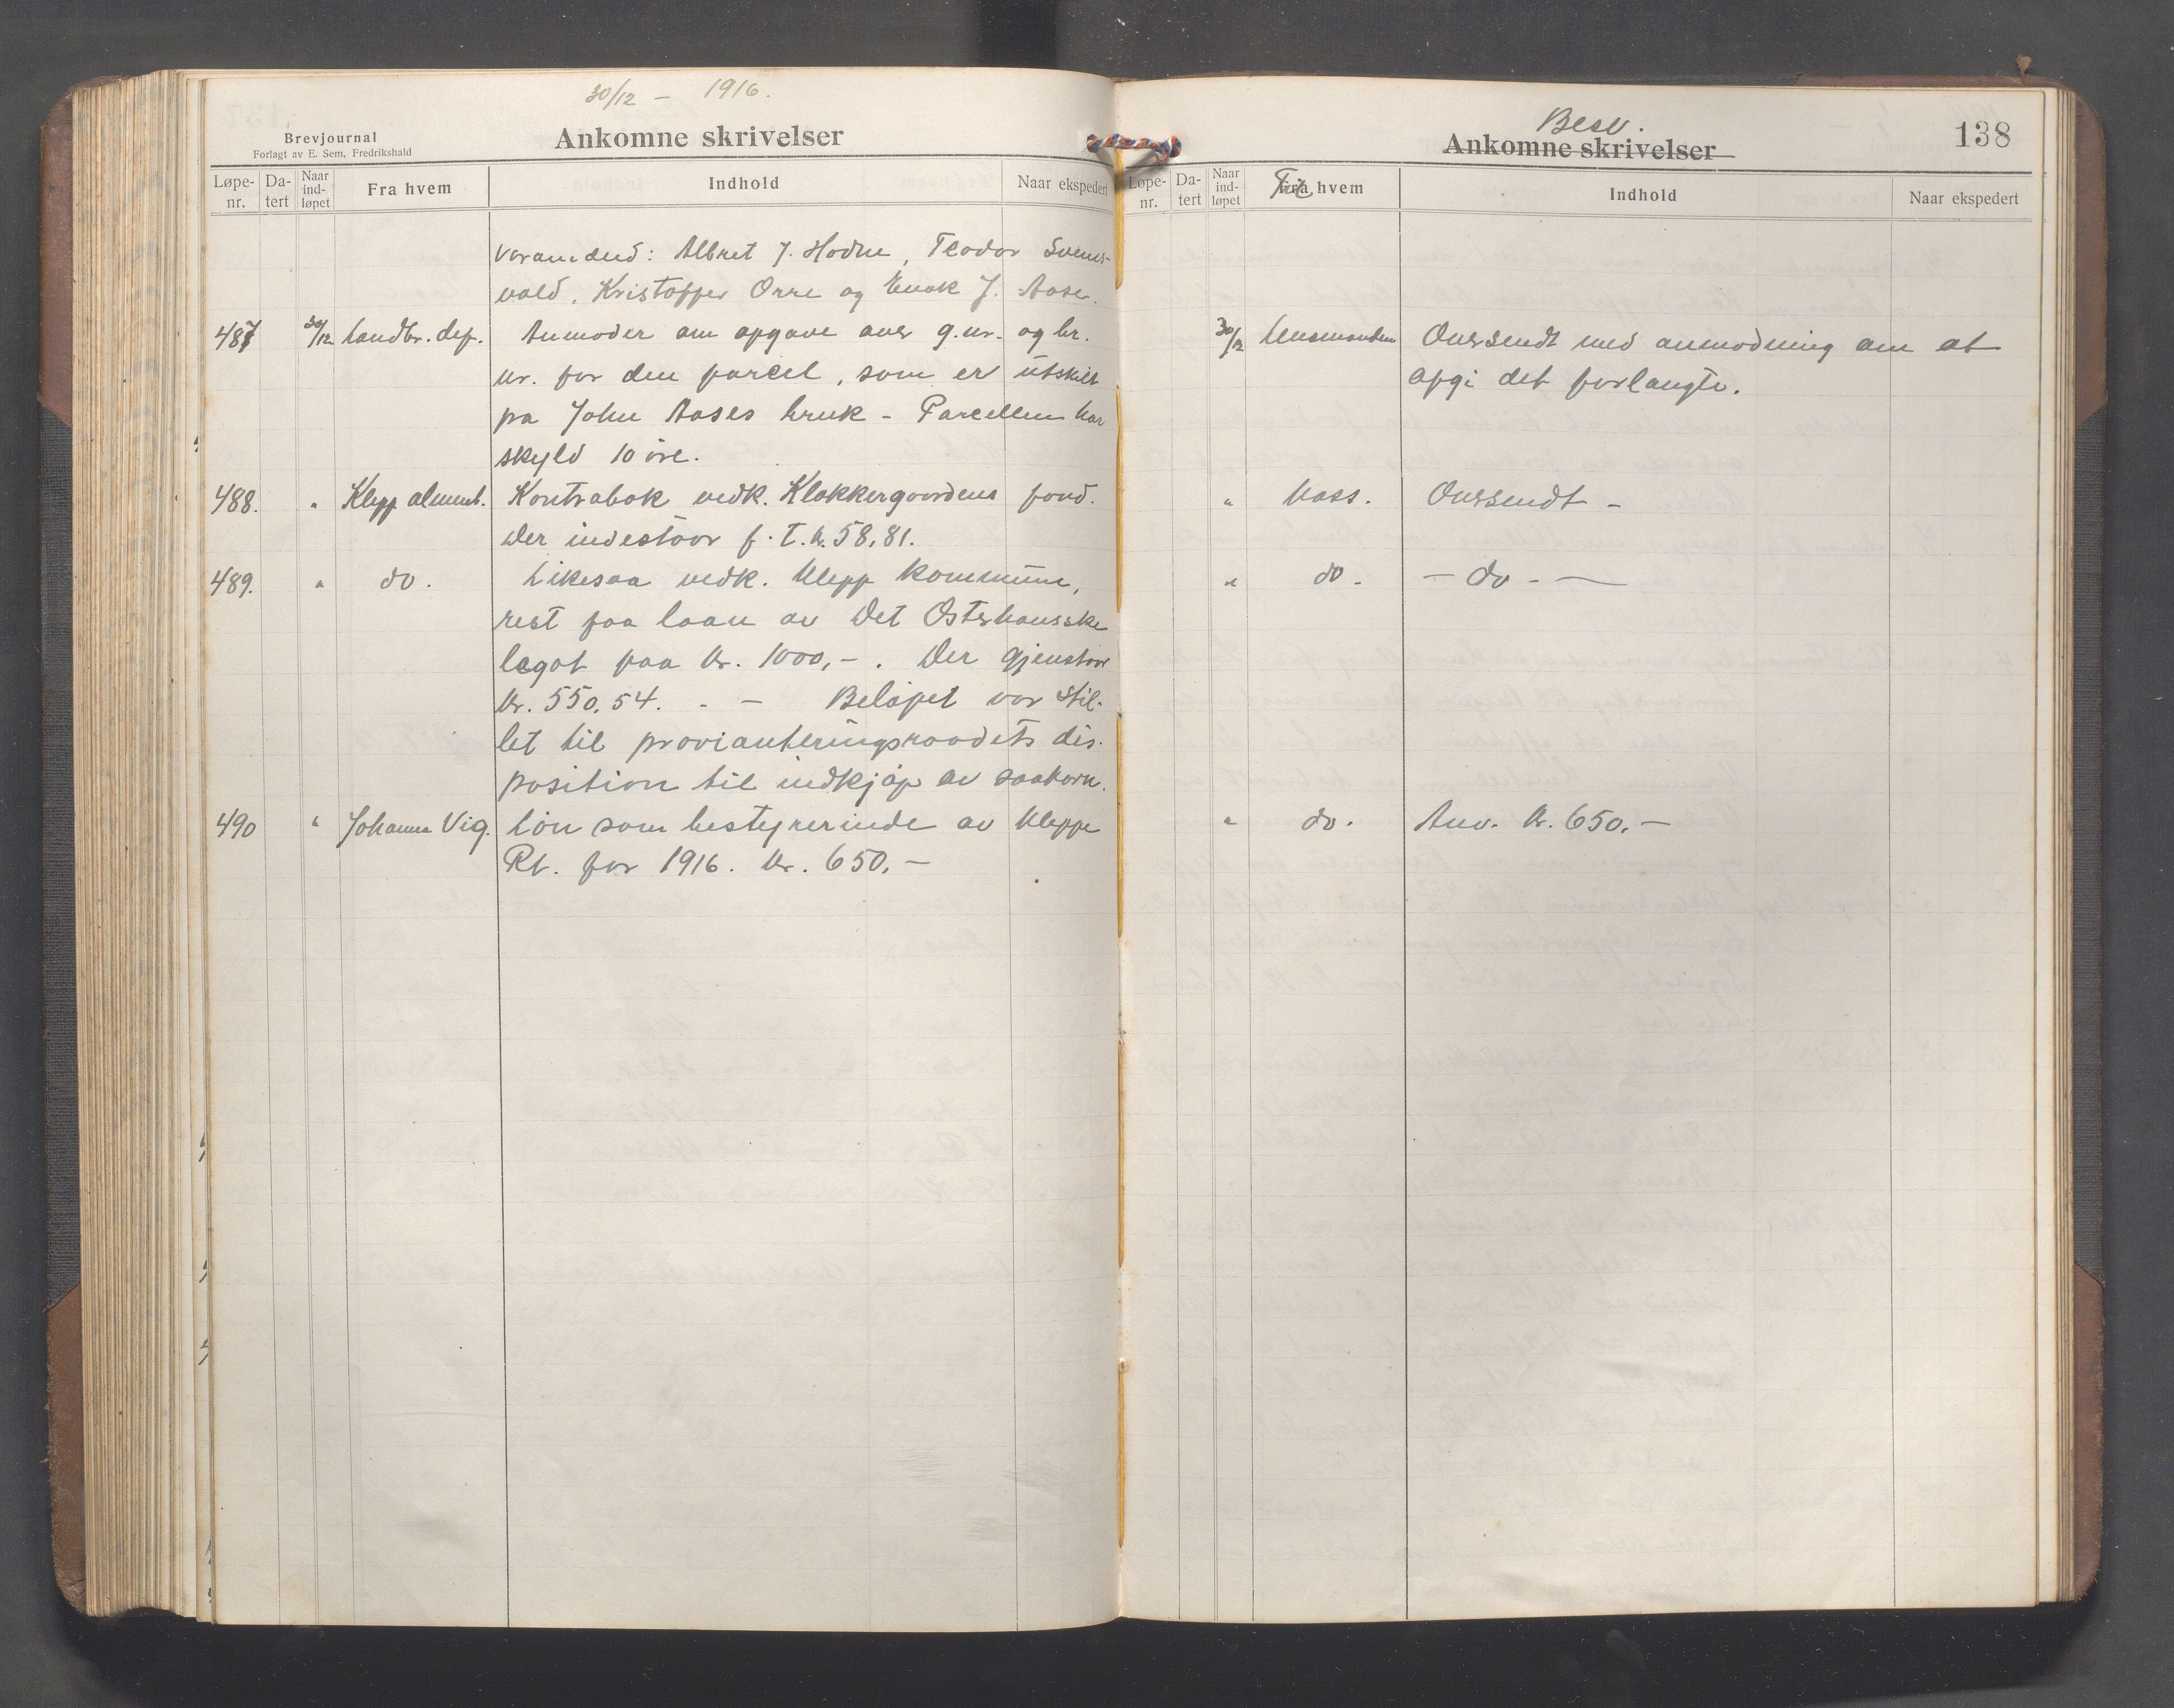 30/12 - 1916.
Brevjournal
Forlagt av E. Sem, Fredrikshald
Ankomne skrivelser
Løpe-nr. Da-tert Naar ind-løpet Fra hvem Indhold Naar ekspedert
varamænd: Albret J. Hodne, Teodor Svens-
vold, Kristoffer Orre og Enok J. Aase.
487 30/12 Landbr. dep. Anmoder om opgave over g.nr. og br.
nr. for den parcel, som er utskilt
pa John Aases bruk - Parcellen har
skyld 10 øre.
488. " Klepp almueb. Kontrabok vedk. Klokkergaardens fond.
Der indestaar f. T. kr. 58,81.
489. " do. Likesaa vedk. Klepp kommune,
rest paa laan av Det Osterhausske
legat paa kr. 1000,-. Der gjenstaar
kr. 550,54. - - Beløpet var stil-
let til provianteringsraadets dis-
position til indkjøp av saakorn.
490 " Johanna Vig. Løn som bestyrerinde av Kleppe
Rt. for 1916. kr. 650,-
Besv.
Ankomne skrivelser
138
Løpe-nr. Da-tert Naar ind-løpet Fra Til hvem Indhold Naar ekspedert
30/12 Lensmanden Oversendt med anmodning om at
opgi det forlangte.
" Kass. Oversendt -
" do. - do - -
" do. Anv. kr. 650,-